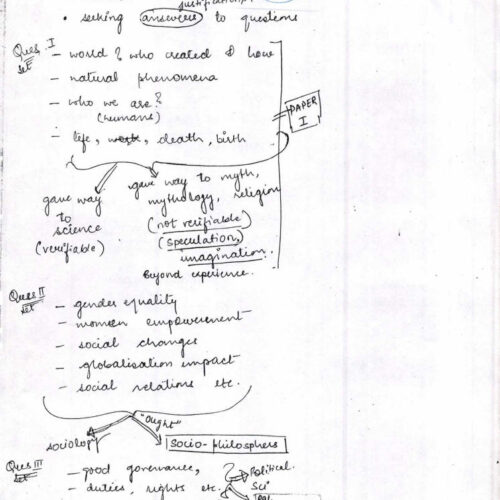 justification
• seeking answers to questions
Ques. I
set
- world? who created & how
- natural phenomena
- who we are?
(humans)
- life, death, birth
PAPER
I
gave way
to
science
(verifiable)
gave way to myth,
mythology, religion
(not verifiable)
(speculation,
imagination.
Beyond experience.
Ques II
set
- gender equality
- women empowerment
- social changes
- globalisation impact
- social relations etc.
"Ought"
sociology
socio-philosphers
Ques III
set
- good governance,
- duties, rights etc.
Political
Sci